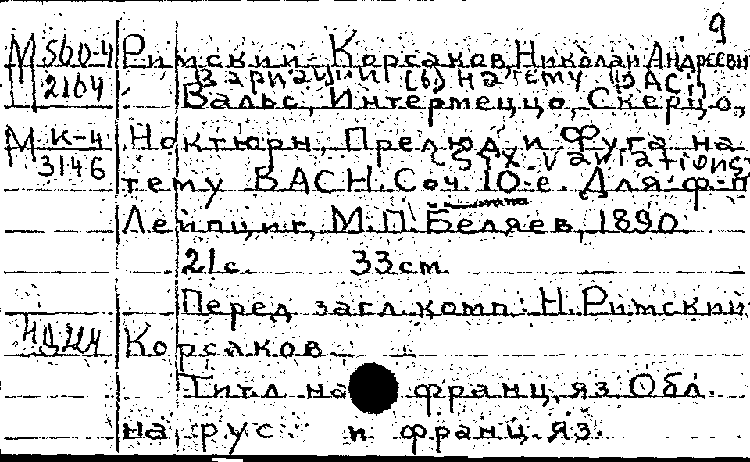 9
М 560-4 Римский-Корсаков, Николай Андреевич
2104 Вариации (6) на тему "BACH"
Вальс, Интермеццо, Скерцо,
М К-4 Ноктюрн, Прелюд и Фуга на
3146 (Six variations
тему BACH. Соч. 10-е. Для ф-п
Лейпциг, М.П. Беляев, 1890.
21 с. 33 см.
Перед загл. комп.: Н. Римский
Корсаков
Титл на франц. яз. Обл.
на рус. и франц. яз.